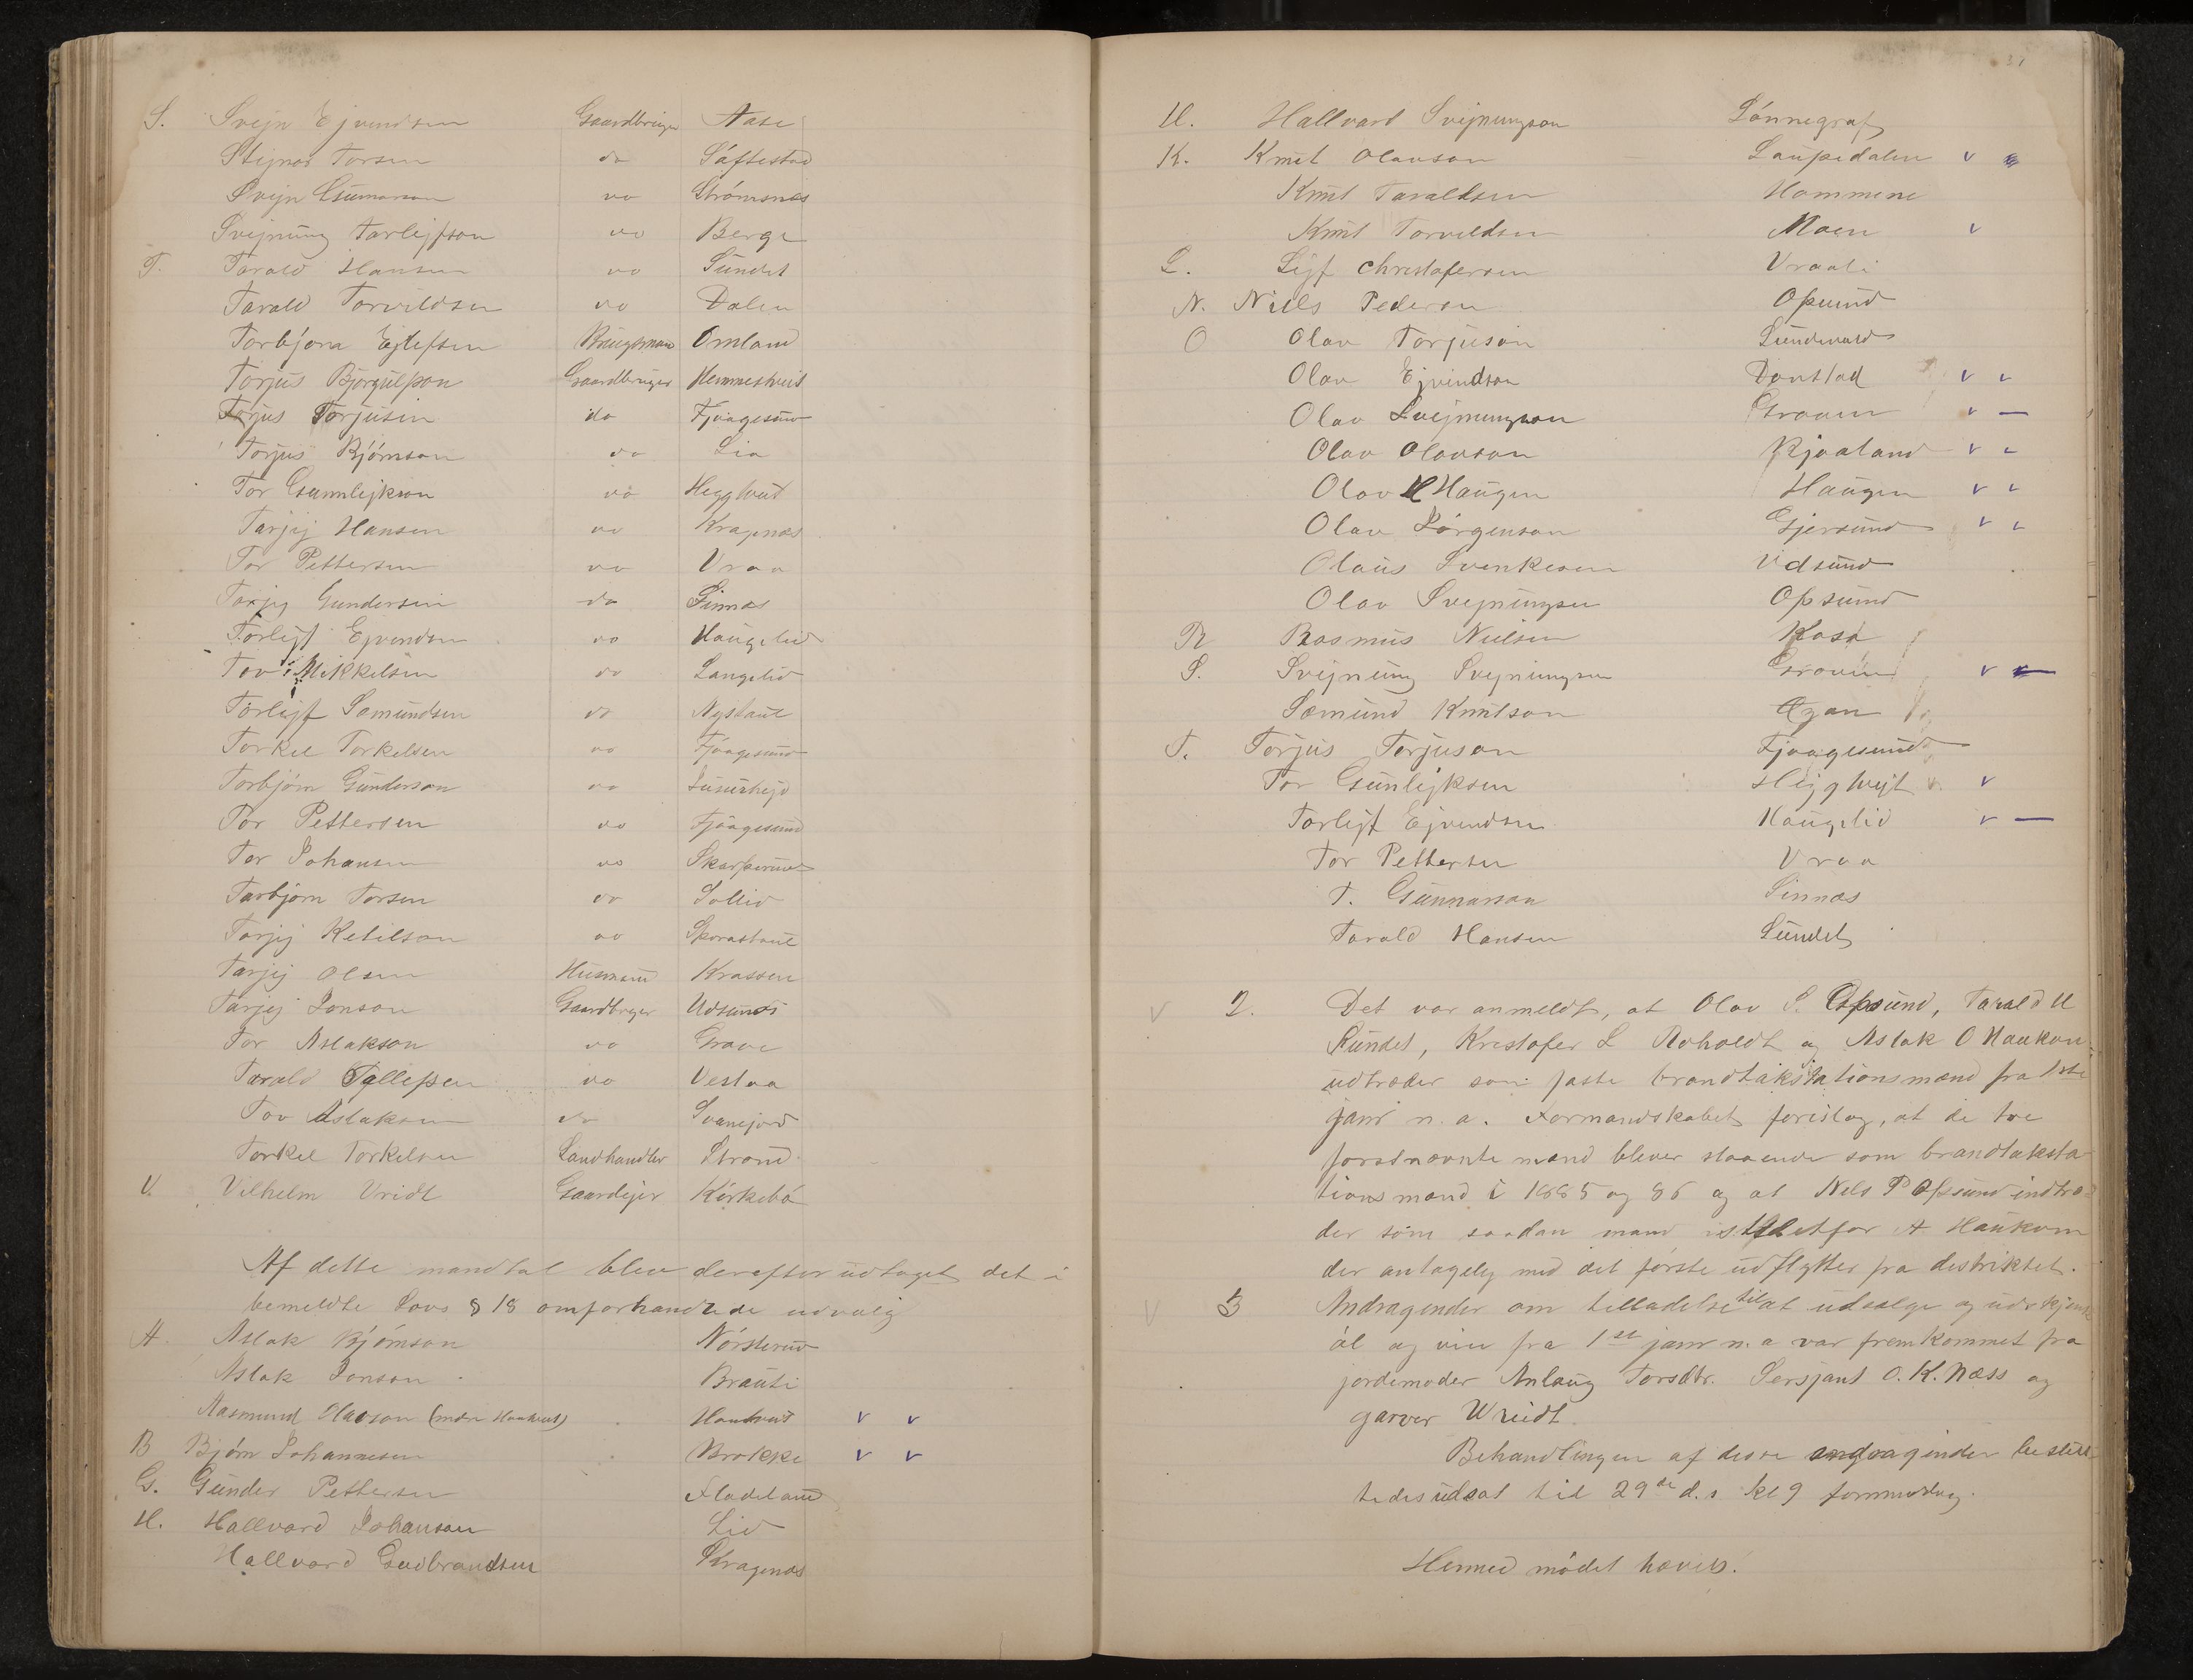 S. Svejn Ejvendsen Gaardbruger Aase
Stejnar Torsen do Säftestad
Svejn Gunnarson do Strömsnes
Svejnung Tarlejfson do Berge
T. Tarald Hansen do Sundet
Tarald Torvildsen do Dalen
Torbjörn Ejlefsen Brugsmand Omland
Torjus Bjorgulfson Gaardbruger Hemmestveit
Torjus Torjusen do Fjaagesund
Torjus Björnson do Lia
Tor Gunnlejkson do Heggtveit
Tarjej Hansen do Kragnæs
Tor Pettersen do Vraa
Tarjej Gundersen do Sinnæs
Torlejf Ejvendsen do Haugelid
Tov Mikkelsen do Langelid
Torlejf Sæmundsen do Nystaul
Torkel Torkelsen do Fjaagesund
Torbjörn Gunderson do
Tor Pettersen do Fjaagesund
Tor Johansen do Skarperud
Tarbjorn Torsen do Sollid
Tarjej Ketilson do Sporastaul
Tarjej Olsen Husmand Krassen
Tarjej Jonson Gaardbruger Udsund
Tor Aslakson do Grave
Tarald Tallefsen do Vestaa
Tov Aslaksen do Svanejord
Torkel Torkelsen Landhandler Strand
V. Vilhelm Vridt Gaardejer Kirkebö
Af dette mandtal blev derefter udtaget det i
bemeldte Lovs § 18 omforhandlede udvalg
A. Aslak Björnson Nörsterud
Aslak Jonson Brauti
Aasmund Olavson Haukveit v v
B Björn Johannesen Brokke v v
G. Gunder Pettersen Fladeland
H. Hallvard Johanson Lid
Hallvard Gudbrandsen Kragenæs
H. Hallvard Svejnungson Lönnegraf
K. Knut Olavson Laupedalen v
Knut Taraldsen Hommene
Knut Torvildsen Moen v
L. Lejf Christofersen Vraali
N. Niels Pederson Opsund
O Olav Torjuson Sundevald
Olav Ejvindson Donstad v v
Olav Svejnungson Graven v —
Olav Olavson Kjaaland v v
Olav H Haugen Haugen v v
Olav Jörgenson Gjersund v v
Olaus Svenkesen Udsund
Olav Svejnungsen Opsund
R Rasmus Nielsen Kasa
S. Svejnung Svejnungsen Graven v —
Sæmund Knutson
T. Torjus Torjuson Fjaagesund
Tor Gunlejksen Heggtvejt v
Torlejf Ejvendsen Haugelid v —
Tor Pettersen Vraa
T. Gunnarson Sinnæs
Tarald Hansen Sundet
v 2. Det var anmeldt, at Olav S. Opsund, Tarald H
Sundet, Kristofer L Roholdt og Aslak O Haukom
udtræder som faste brandtakstationsmænd fra 1ste
janr n. a. Formandskabet foreslog, at de tre
förstnævnte mænd blever staaende som brandtaksta
tionsmænd i 1885 og 86 og at Nels P Opsund indtræ
der som saadan mand istedetfor A Haukom
der antagelig med det förste udflytter fra distriktet.
v 3 Andragender om tilladelse til at udsælge og udskjenke
öl og vin fra 1ste janr n. a var fremkommet fra
jordemoder Anlaug Torsdtr. Sersjant O. K. Næss og
garver Wridt.
Behandlingen af disse andragender beslut-
tedes udsat til 29de d. s kl 9 formiddag.
Hermed mödet hævet.